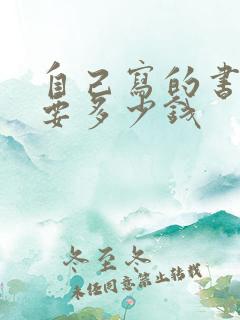 自己寫的書
要多少錢
冬至冬
未經同意禁止轉載